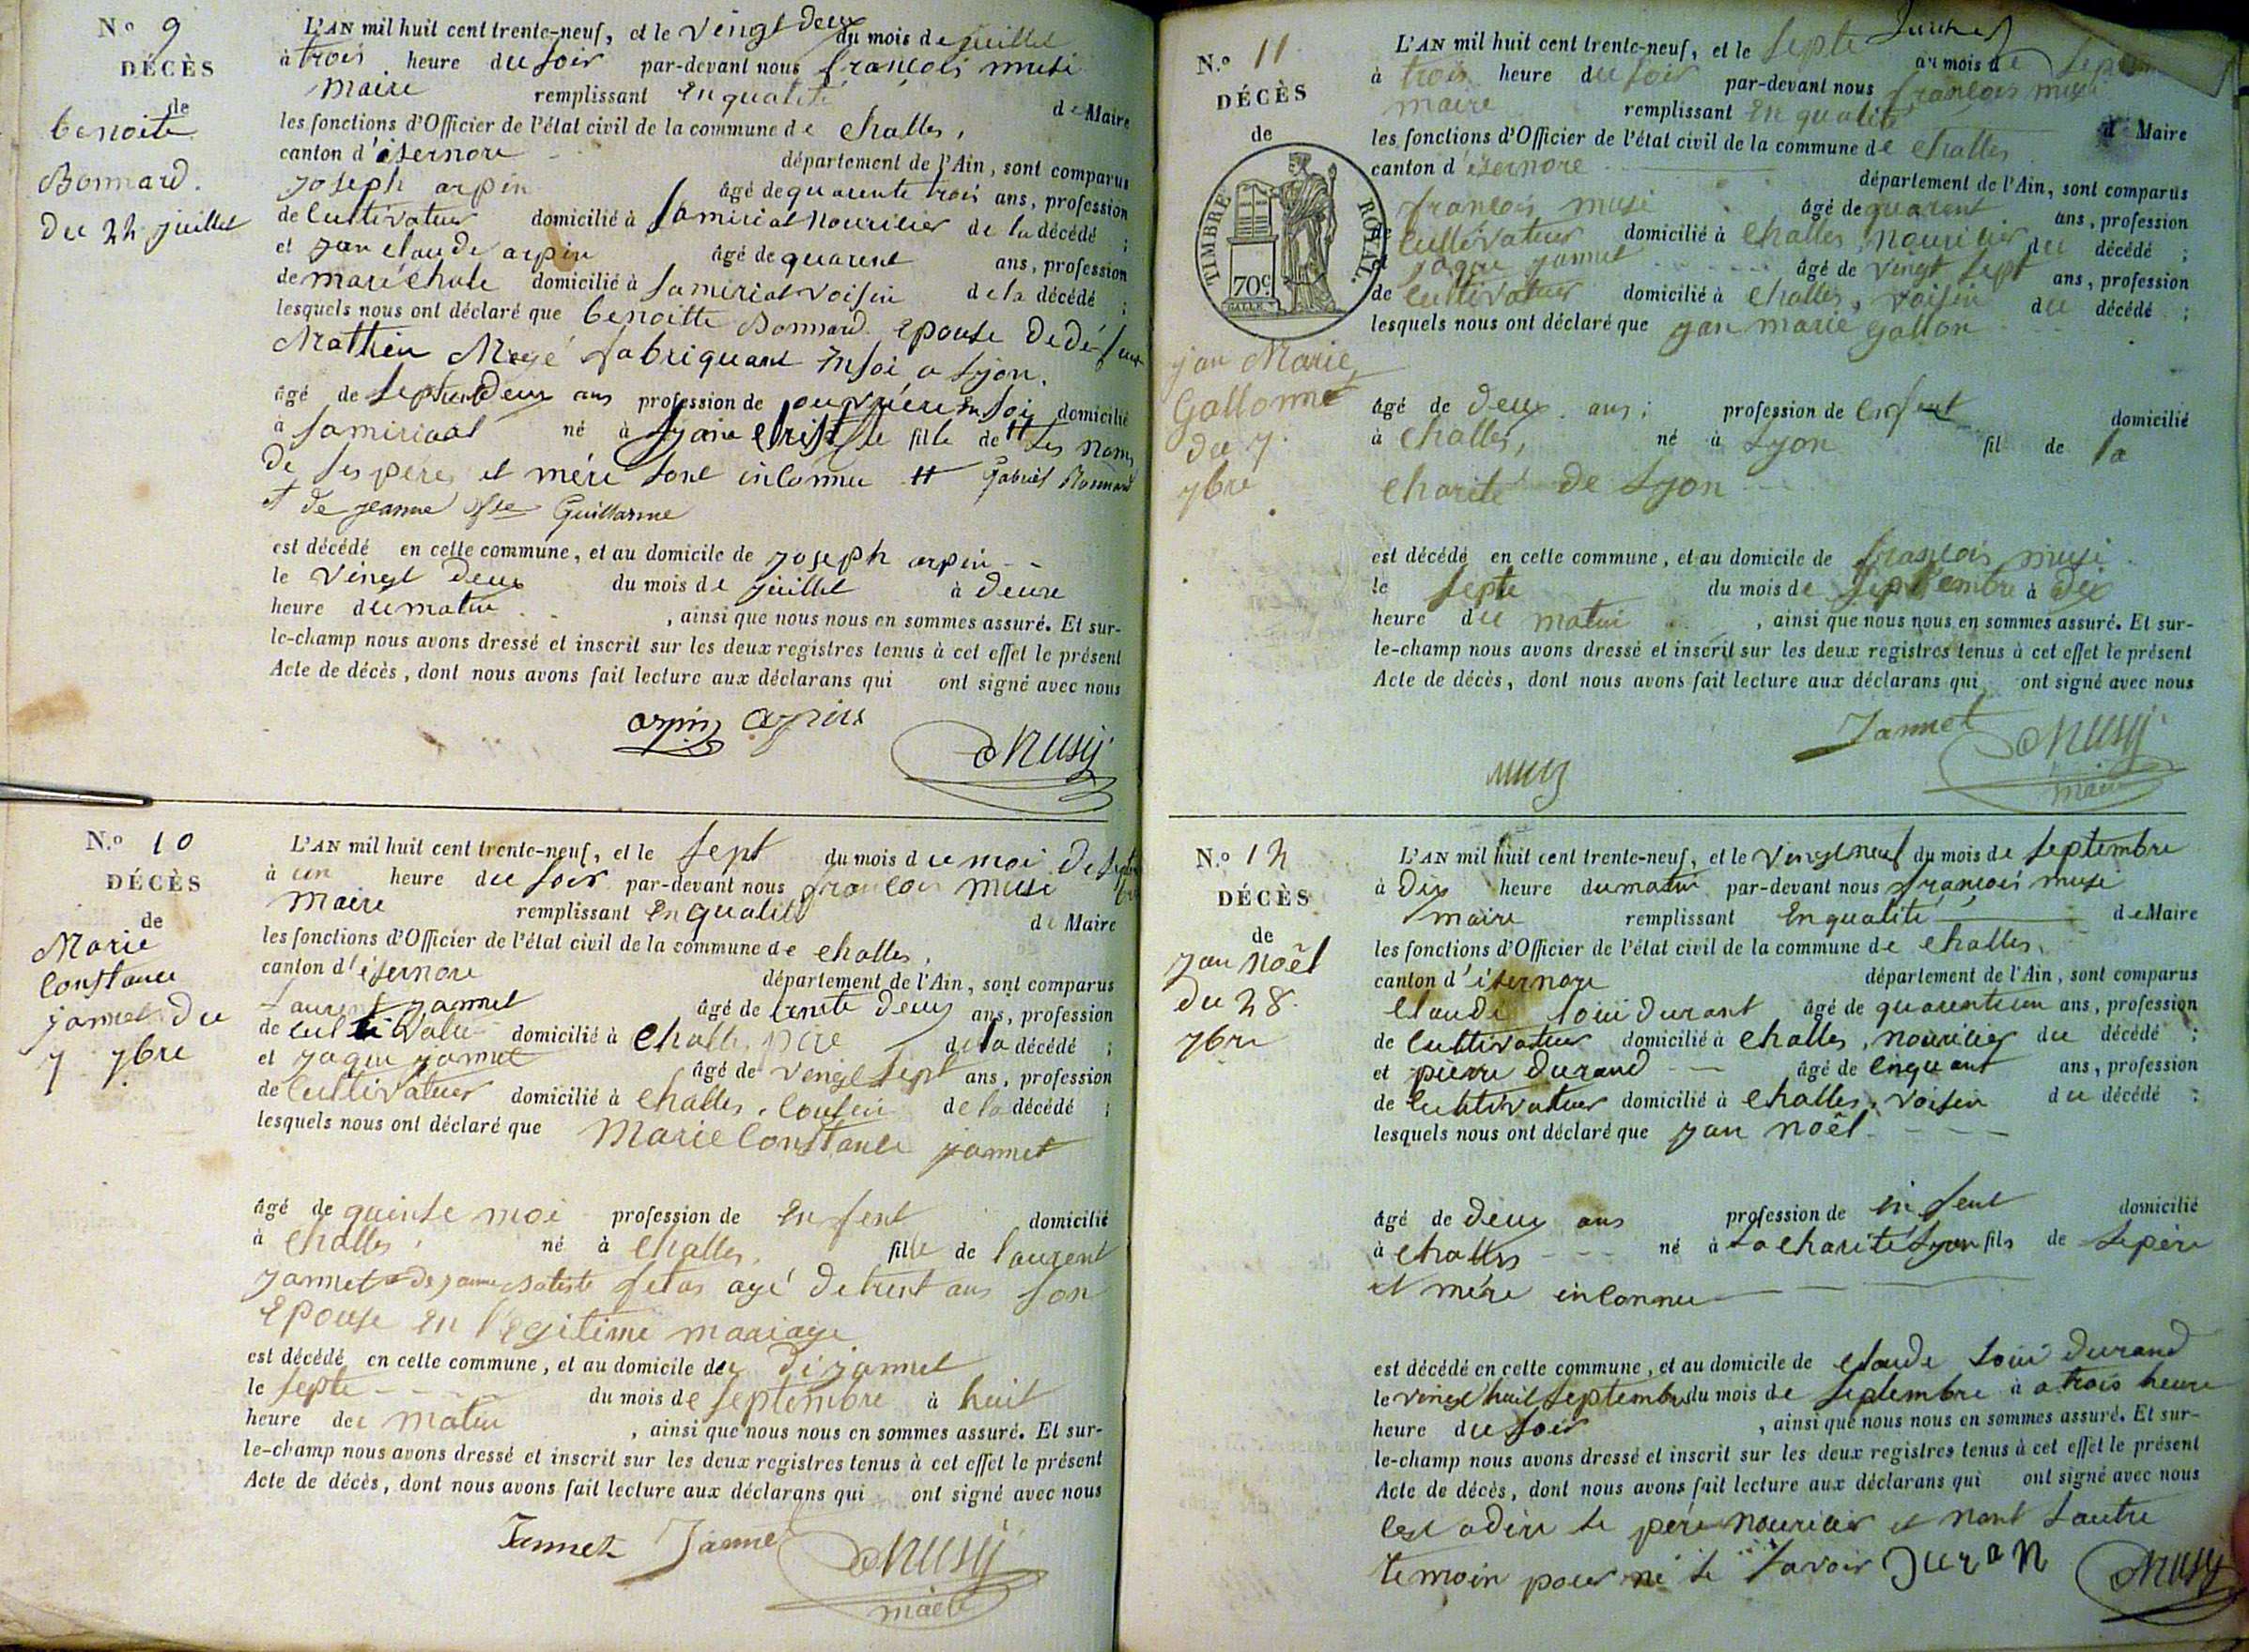 N.o 9
DÉCÈS
de
benoite
Bonnard.
du 22 juillet
L'AN mil huit cent trente-neuf, et le vingt deux du mois de juillet
à trois heure du soir par-devant nous francois musi
maire remplissant en qualité de Maire
les fonctions d'Officier de l'état civil de la commune de challes,
canton d'isernore département de l'Ain, sont comparus
joseph arpin âgé de quarente trois ans, profession
de cultivateur domicilié à samiriat nouricier de la décédé ;
et jan claude arpin âgé de quarent ans, profession
de maréchale domicilié à samiriat voisin de la décédé ;
lesquels nous ont déclaré que benoitte Bonnard epouse de défunt
Mathieu fabriquant en soi a Lyon.
âgé de ans profession de ouvrière en soi domicilié
à samiriat né à fille de # les noms
de ses peres et mére sont inconnu # Gabriel Bonnard
et de jeanne Guillarme
est décédé en cette commune, et au domicile de joseph arpin
le vingt deux du mois de juillet à deure
heure du matin , ainsi que nous nous en sommes assuré. Et sur-
le-champ nous avons dressé et inscrit sur les deux registres tenus à cet effet le présent
Acte de décès, dont nous avons fait lecture aux déclarans qui ont signé avec nous
arpin arpin
Musy
N.o 10
DÉCÈS
de
Marie
Constance
jannet du
7 7bre
L'AN mil huit cent trente-neuf, et le sept du mois du moi de septembre
à un heure du soir par-devant nous francois musi
maire remplissant en qualité de Maire
les fonctions d'Officier de l'état civil de la commune de challes,
canton d'isernore département de l'Ain, sont comparus
Laurent jannet âgé de trente deux ans, profession
de domicilié à challes, père de la décédé ;
et jaque jannet âgé de vingt sept ans, profession
de cultivateur domicilié à challes, cousin de la décédé ;
lesquels nous ont déclaré que Marie Constance jannet
âgé de quinse moi profession de enfent domicilié
à challes, né à challes, fille de laurent
jannet de janne batiste agé de trent ans son
epouse en légitime mariage
est décédé en cette commune, et au domicile du di jannet
le septe du mois de septembre à huit
heure du matin , ainsi que nous nous en sommes assuré. Et sur-
le-champ nous avons dressé et inscrit sur les deux registres tenus à cet effet le présent
Acte de décès, dont nous avons fait lecture aux déclarans qui ont signé avec nous
Jannet Janne Musy
maire
N.o 11
DÉCÈS
de
TIMBRE ROYAL.
70c
jan Marie
Gallonne
du 7
7bre
L'AN mil huit cent trente-neuf, et le septe du mois de
à trois heure du soir par-devant nous françois musi
maire remplissant en qualité de Maire
les fonctions d'Officier de l'état civil de la commune de challes
canton d'isernore département de l'Ain, sont comparus
francois musi âgé de quarent ans, profession
de cultivateur domicilié à challes nouricier du décédé ;
et jaque jannet âgé de vingt sept ans, profession
de cultivateur domicilié à challes, voisin du décédé ;
lesquels nous ont déclaré que jan marie gallon
âgé de deux ans; profession de enfent domicilié
à challes, né à Lyon fil de la
charité de Lyon
est décédé en cette commune, et au domicile de francois musi
le septe du mois de septembre à dix
heure du matin , ainsi que nous nous en sommes assuré. Et sur-
le-champ nous avons dressé et inscrit sur les deux registres tenus à cet effet le présent
Acte de décès, dont nous avons fait lecture aux déclarans qui ont signé avec nous
Jannet Musy
musy maire
N.o 12
DÉCÈS
de
jan noël
du 28
7bre
L'AN mil huit cent trente-neuf, et le vingt neuf du mois de septembre
à dix heure du matin par-devant nous francois musi
maire remplissant en qualité de Maire
les fonctions d'Officier de l'état civil de la commune de challes,
canton d'isernore département de l'Ain, sont comparus
claude loui durant âgé de quarenteun ans, profession
de cultivateur domicilié à challes, nouricier du décédé ;
et pierre durand âgé de cinquant ans, profession
de cultivateur domicilié à challes, voisin du décédé ;
lesquels nous ont déclaré que jan noël
âgé de deux ans profession de enfent domicilié
à challes né à la charité Lyon fils de sepère
et mére inconnu
est décédé en cette commune, et au domicile de claude loui durand
le vingt huit septembre du mois de septembre à a trois heure
heure du soir , ainsi que nous nous en sommes assuré. Et sur-
le-champ nous avons dressé et inscrit sur les deux registres tenus à cet effet le présent
Acte de décès, dont nous avons fait lecture aux déclarans qui ont signé avec nous
cest adire le père nouricier et nont lautre
temoin pour ne le savoir Duran Musy